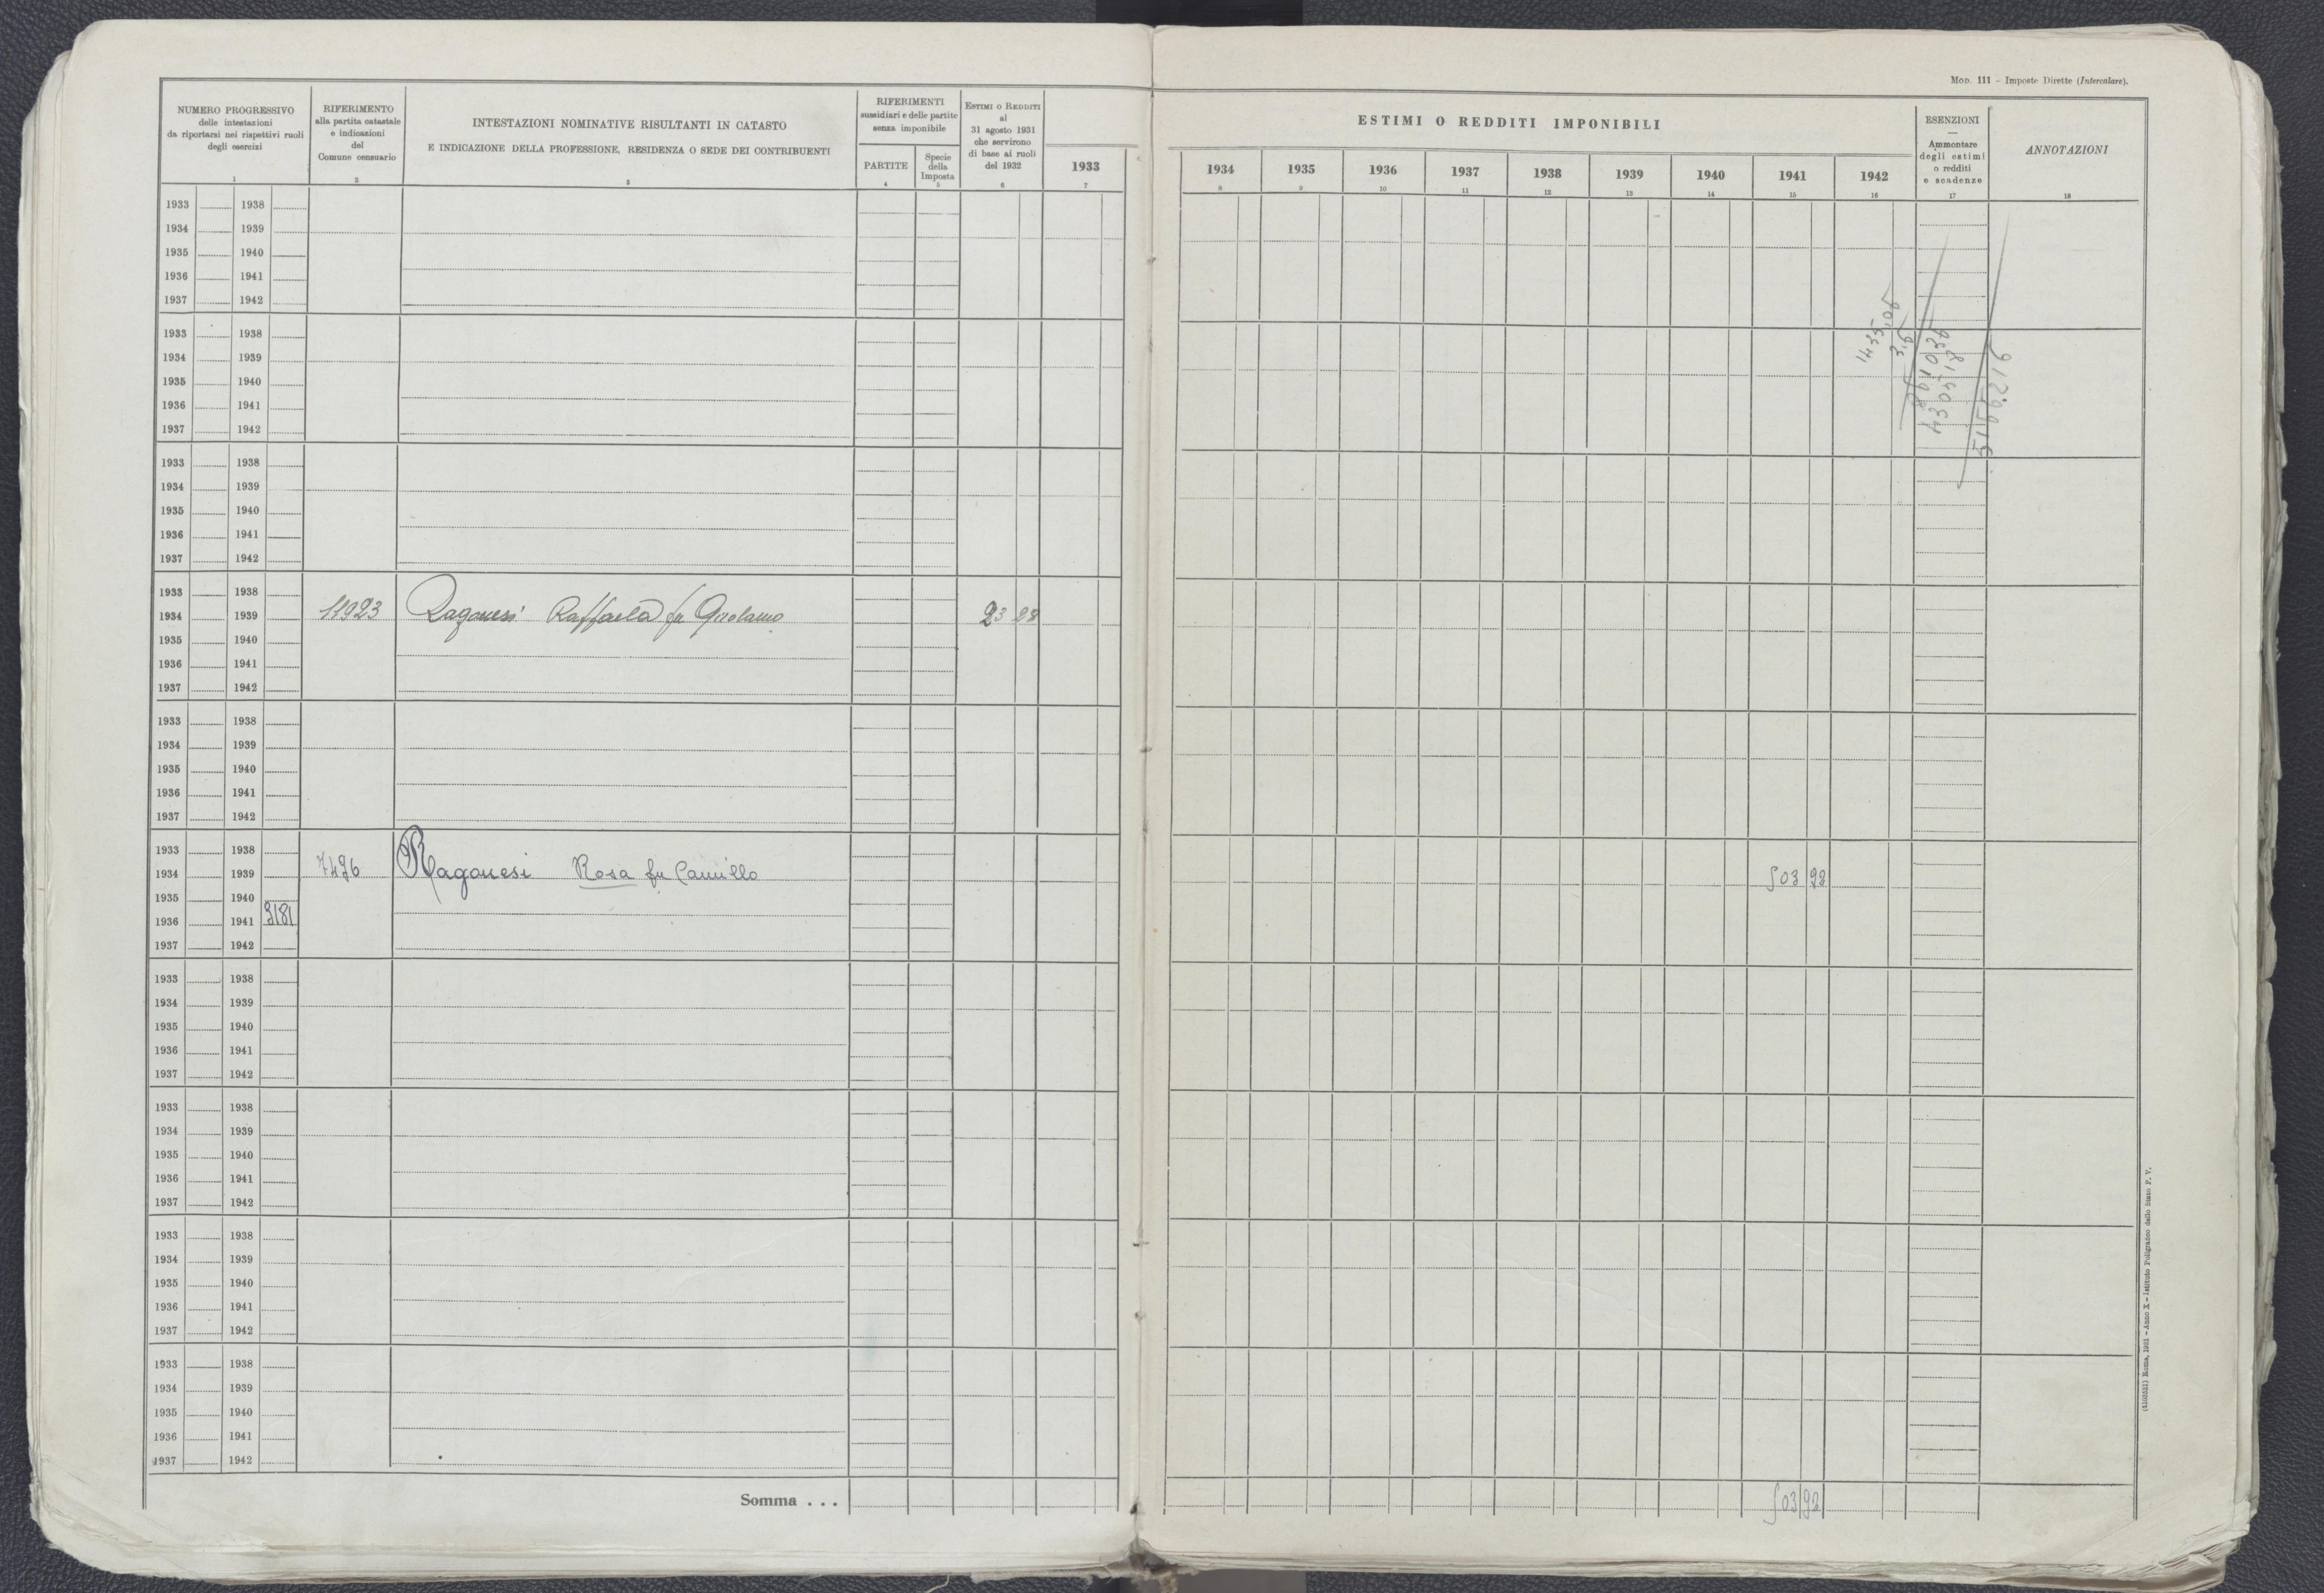 MOD. 111 - Imposte Dirette (Intercalare).
NUMERO PROGRESSIVO
delle intestazioni
da riportarsi nei rispettivi ruoli
degli esercizi
1
RIFERIMENTO
alla partita catastale
e indicazioni
del
Comune censuario
2
INTESTAZIONI NOMINATIVE RISULTANTI IN CATASTO
E INDICAZIONE DELLA PROFESSIONE, RESIDENZA O SEDE DEI CONTRIBUENTI
3
RIFERIMENTI
sussidiari e delle partite
senza imponibile
PARTITE
4
Specie
della
Imposta
5
ESTIMI O REDDITI
al
31 agosto 1931
che servirono
di base ai ruoli
del 1932
6
1933
7
ESTIMI O REDDITI IMPONIBILI
1934 1935 1936 1937 1938 1939 1940 1941 1942
8 9 10 11 12 13 14 15 16
ESENZIONI
—
Ammontare
degli estimi
o redditi
e scadenze
17
ANNOTAZIONI
18
1933 1938
1934 1939
1935 1940
1936 1941
1937 1942
1933 1938
1934 1939
1935 1940
1936 1941
1937 1942
1435,06
3,6
1933 1938
1934 1939
1935 1940
1936 1941
1937 1942
1933 1938
1934 1939 11923 Ragonesi Raffaela fu Girolamo 23 28
1935 1940
1936 1941
1937 1942
1933 1938
1934 1939
1935 1940
1936 1941
1937 1942
1933 1938
1934 1939 7496 Ragonesi Rosa fu Camillo 503 92
1935 1940
1936 1941 3181
1937 1942
1933 1938
1934 1939
1935 1940
1936 1941
1937 1942
1933 1938
1934 1939
1935 1940
1936 1941
1937 1942
1933 1938
1934 1939
1935 1940
1936 1941
1937 1942
1933 1938
1934 1939
1935 1940
1936 1941
1937 1942
Somma . . . 503 92
(4160521) Roma, 1931 - Anno X - Istituto Poligrafico dello Stato P. V.